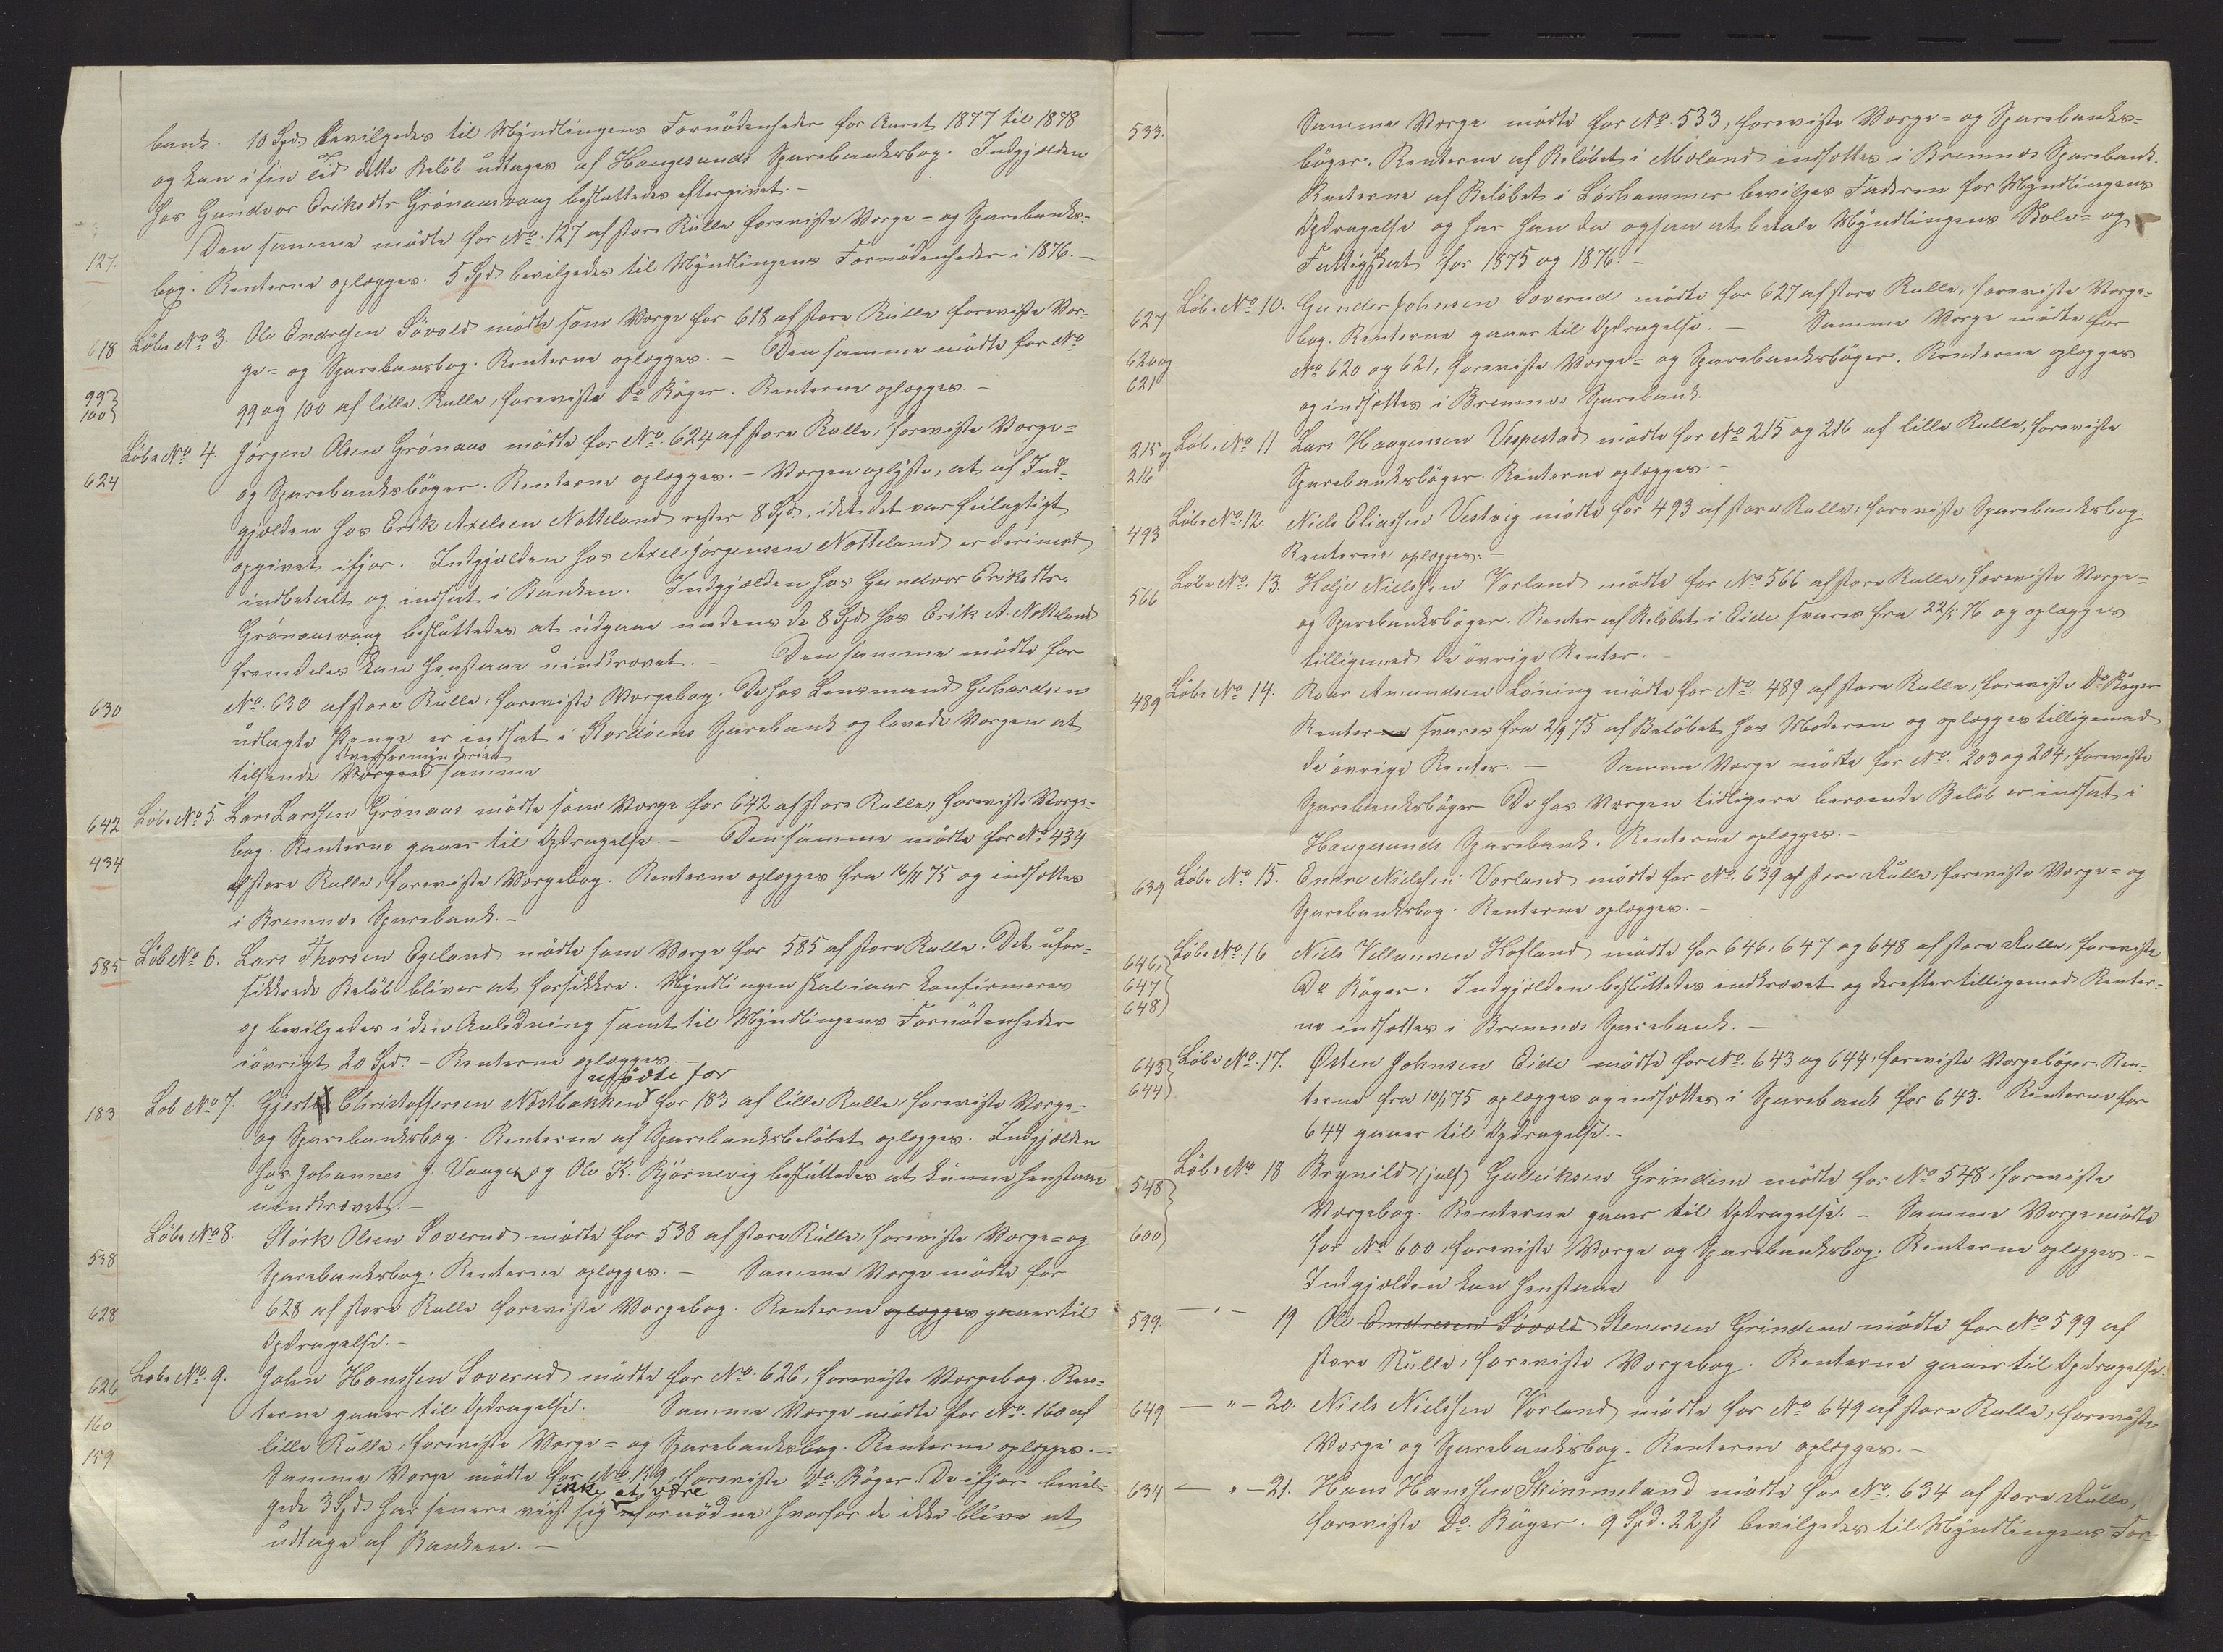 bank. 10 Spd. bevilgedes til Myndlingens Fornödenheder for Aaret 1877 til 1878
og kan i sin Tid dette Belöb udtages af Haugesunds Sparebanksbog. Indgjælden
hos Gundvor Eriksdtr Grönaasvaag besluttedes eftergivet.-
127. Den samme mödte for No. 127 af store Rulle foreviste Værge- og Sparebanks-
bog. Renterne oplægges. 5 Spd bevilgedes til Myndlingens Fornödenheder i 1876.-
618 Löbe No 3. Ole Endresen Såvold mödte som Værge for 618 af store Rulle foreviste Vær-
ge- og Sparebanksbog. Renterne oplægges. - Den samme mödte for No
99 } 100 } 99 og 100 af lille Rulle, foreviste Do Böger. Renterne oplægges.-
Löbe No 4. Jörgen Olsen Grönaas mödte for No. 624 af store Rulle, foreviste Værge-
624 og Sparebanksböger. Renterne oplægges. - Værgen oplyste, at af Ind-
gjælden hos Erik Axelsen Notteland rester 8 Spd, idet det var feilagtigt
opgivet ifjor. Indgjælden hos Axel Jörgensen Notteland er derimod
indbetalt og indsat i Banken. Indgjælden hos Gundvor Eriksdtr.
Grönaasvaag besluttedes at udgaae medens de 8 Spd hos Erik A. Notteland
fremdeles kan henstaae uindkrævet. - Den samme mödte for
630 No. 630 af store Rulle, foreviste Værgebog. De hos Lensmand Gerhardsen
udlagte Penge er indsat i Stordöens Sparebank og lovede Værgen at
Overformynderiet
tilsende Værgen samme
642 Löbe No 5. Lars Larssen Grönaas mödte som Værge for 642 af store Rulle, foreviste Værge-
bog. Renterne gaaer til Opdragelse. - Den samme mödte for No 434
434 af store Rulle, foreviste Værgebog. Renterne oplægges fra 16/11 75 og indsættes
i Bremnes Sparebank.-
585 Löbe No 6. Lars Thorsen Egeland mödte som Værge for 585 af store Rulle. Det ufor-
sikkrede Belöb bliver at forsikkre. Myndlingen skal iaar konfirmeres
og bevilgedes i den Anledning samt til Myndlingens Fornödenheder
iövrigt 20 Spd. - Renterne oplægges.-
mödte for
183 Löb No 7. Gjert Christoffersen Nordbakken for 183 af lille Rulle, foreviste Værge-
og Sparebanksbog. Renterne af Sparebanksbelöbet oplægges. Indgjælden
hos Johannes J. Vaage og Ole K. Björnevig besluttedes at kunne henstaae
uindkrævet.-
Löbe No 8. Störk Olsen Soverud mödte for 538 af store Rulle, foreviste Værge- og
538 Sparebanksbog. Renterne oplægges. - Samme Værge mödte for
628 628 af store Rulle foreviste Værgebog. Renterne oplægges gaaer til
Opdragelse.-
626 Löbe No. 9. John Hanssen Soverud mödte for No. 626, foreviste Værgebog. Ren-
terne gaaer til Opdragelse. Samme Værge mödte for No. 160 af
160 lille Rulle, foreviste Værge- og Sparebanksbog. Renterne oplægges.-
159 Samme Værge mödte for No. 159, foreviste Do. Böger. De ifjor bevil-
ikke at være
gede 3 Spd har senere viist sig fornödne hvorfor de ikke blive at
udtage af Banken.-
533. Samme Værge mödte for No. 533, foreviste Værge- og Sparebanks-
böger. Renterne af Belöbet i Moland indsættes i Bremnes Sparebank.
Renterne af Belöbet i Löshammer bevilges Faderen for Myndlingens
Opdragelse og har han da ogsaa at betale Myndlingens Skole- og
Fattigskat for 1875 og 1876.-
627 Löbe No 10. Gunder Johnsen Soverud mödte for 627 af store Rulle, foreviste Værge-
bog. Renterne gaaer til Opdragelse. - Samme Værge mödte for
620 og 621 No 620 og 621, foreviste Værge- og Sparebanksböger. Renterne oplægges
og indsættes i Bremnes Sparebank.
215 og 216 Löbe No 11 Lars Haagensen Vespestad mödte for No 215 og 216 af lille Rulle, foreviste
Sparebanksböger. Renterne oplægges.-
493 Löbe No. 12. Niels Eliassen Vestvig mödte for 493 af store Rulle, foreviste Sparebanksbog.
Renterne oplægges.-
566 Löbe No. 13. Helje Nielssen Vorland mödte for No 566 af store Rulle, foreviste Værge-
og Sparebanksböger. Renter af Belöbet i Eide svares fra 22/5 76 og oplægges
tilligemed de övrige Renter.-
489 Löbe No 14. Roar Amundsen Löning mödte for No. 489 af store Rulle, foreviste Do Böger
Renter svares fra 2/9 75 af Belöbet hos Moderen og oplægges tilligemed
de övrige Renter. - Samme Værge mödte for No. 203 og 204, foreviste
Sparebanksböger. De hos Værgen tidligere beroende Belöb er indsat i
Haugesunds Sparebank. Renterne oplægges.-
639 Löbe No 15. Endre Nielssen Vorland mödte for No. 639 af store Rulle, foreviste Værge- og
Sparebanksbog. Renterne oplægges.-
646, 647 648 } Löbe No. 16 Niels Villumsen Hofland mödte for 646, 647 og 648 af store Rulle, foreviste
Do Böger. Indgjælden besluttedes indkrævet og derefter tilligemed Renter-
ne indsættes i Bremnes Sparebank.-
643 644 } Löbe No. 17. Östen Johnsen Eide mödte for No. 643 og 644, foreviste Værgeböger. Ren-
terne fra 10/1 75 oplægges og indsættes i Sparebank for 643. Renterne for
644 gaaer til Opdragelse.-
548 } Löbe No 18 Brynild (julf) Gulleiksen Grinden mödte for No 548, foreviste
Værgebog. Renterne gaaer til Opdragelse. - Samme Værge mödte
600 } for No 600, foreviste Værge og Sparebanksbog. Renterne oplægges.-
Indgjælden kan henstaae
599. - " - 19 Ole Endresen Såvold Stenersen Grinden mödte for No 599 af
store Rulle, foreviste Værgebog. Renterne gaaer til Opdragelse.
649 - " - 20. Niels Nielssen Vorland mödte for No 649 af store Rulle, foreviste
Værge og Sparebanksbog. Renterne oplægges.-
634 - " - 21. Hans Hanssen Skimmeland mödte for No. 634 af store Rulle,
foreviste Do. Böger. 9 Spd. 22 ß bevilgedes til Myndlingens For-